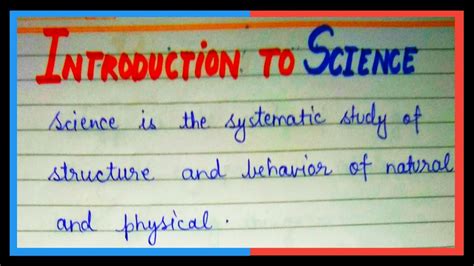 INTRODUCTION TO SCIENCE
Science is the systematic study of
structure and behavior of natural
and physical.